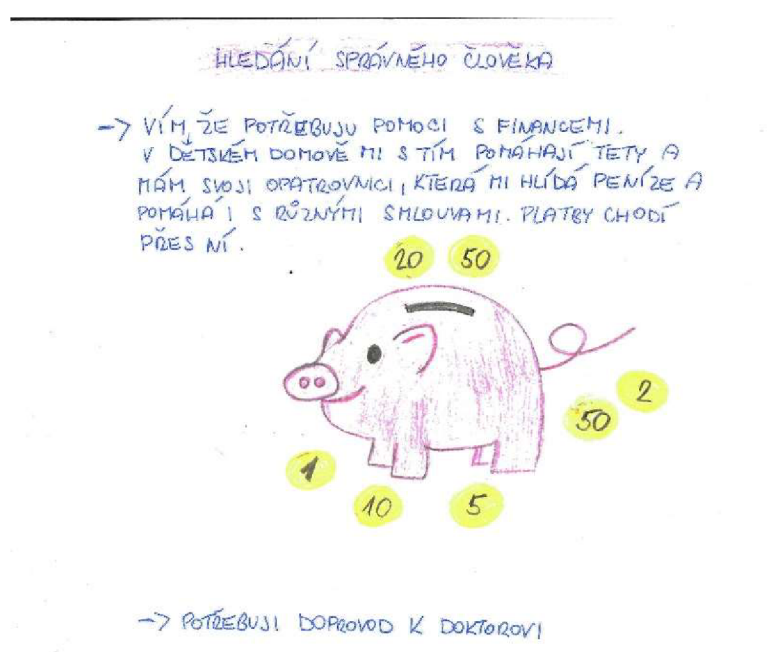 HLEDÁNÍ SPRÁVNÉHO ČLOVĚKA
-> VÍM, ŽE POTŘEBUJU POMOCI S FINANCEMI.
V DĚTSKÉM DOMOVĚ MI S TÍM POMÁHAJÍ TETY A
MÁM SVOJI OPATROVNICI, KTERÁ MI HLÍDÁ PENÍZE A
POMÁHÁ I S RŮZNÝMI SMLOUVAMI. PLATBY CHODÍ
PŘES NÍ.
20 50
2
50
1
10 5
-> POTŘEBUJI DOPROVOD K DOKTOROVI